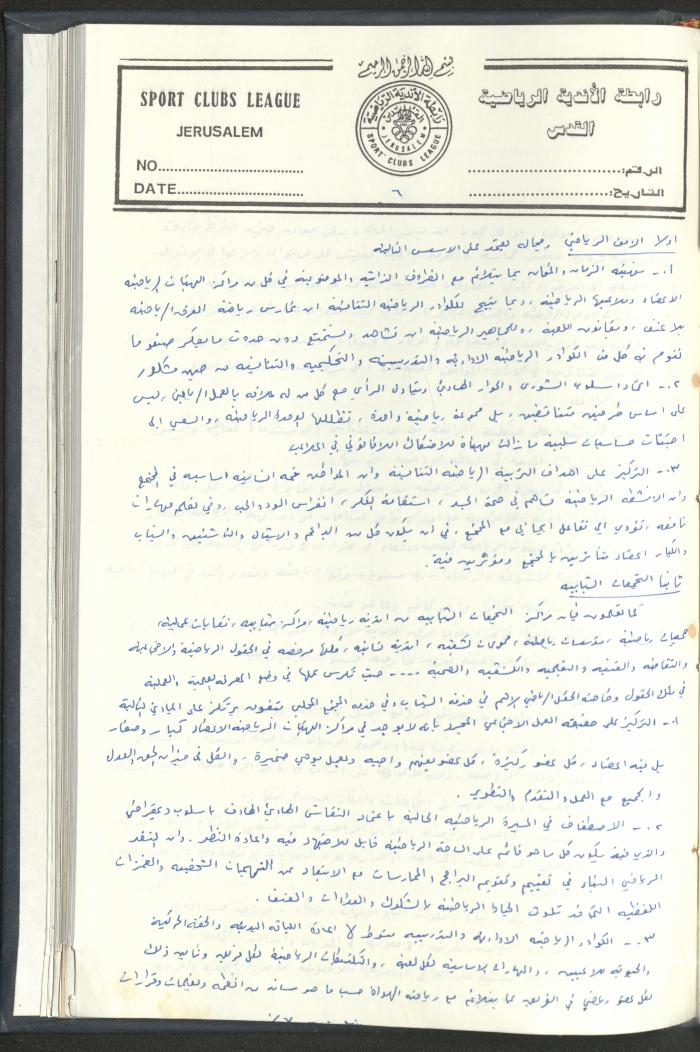 بسم الله الرحمن الرحيم
SPORT CLUBS LEAGUE
JERUSALEM
NO.
DATE
رابطة الأندية الرياضية
القدس
الرقم:
التاريخ:
رابطة الأندية الرياضية
القدس
JERUSALEM
SPORT CLUBS LEAGUE
٦
اولا الامن الرياضي ومجاله يعتمد على الاسس التالية
١.- الزمان والمكان بما يتلائم مع الظروف الذاتية والموضوعية في كل من مراكز الهيئات الرياضية
الاعضاء وملاعبها الرياضية، وبما يتيح للكوادر الرياضية التنافسية ان تمارس رياضة الفرق الرياضية
بلا عنف، وبقانون اللعبة، وللجماهير الرياضية ان تشاهد وتستمتع دون حدوث ما يعكر صفو ما
تقوم به كل من الكوادر الرياضية الادارية والتدريبية والتحكيمية والتنافسية من جهد مشكور
٢.- اعتماد اسلوب الشورى والحوار الهادئ وتبادل الرأي مع كل من له علاقة بالعمل الرياضي ليس
على اساس طرفين متناقضين، بل مجموعة رياضية واحدة، تظللها الوحدة الرياضية، والسعي الى
حساسيات سلبية ما زالت للاحتكاك اللاقانوني في الملاعب
٣.- التركيز على اهداف التربية الرياضية التنافسية وان المواطن قيمة انسانية اساسية في المجتمع
وان الانشطة الرياضية تساهم في صحة الجسد، استقامة الفكر، لغرس الود والحب، وفي تعليم مهارات
نافعة، تؤدي الى تفاعل ايجابي مع المجتمع، في ان يكون كل من البراعم والاشبال والناشئين والشباب
والكبار اعضاء متأثرين بالمجتمع ومؤثرين فيه.
ثانيا التجمعات الشبابية
كما تعلمون فإن مراكز التجمعات الشبابية من اندية رياضية، مراكز شبابية، نقابات عمالية،
جمعيات رياضية، مؤسسات رياضية، مجموعات كشفية، اندية نسائية، وفي الحقول الرياضية والاجتماعية
والثقافية والفنية والتعليمية والكشفية والصحية .... حيث تكرس عملها في وضع المعرفة العلمية والعملية
في تلك الحقول وخاصة الحقل الرياضي في خدمة الشباب وفي خدمة المجتمع المحلي يرتكز على المبادئ التالية
١.- التركيز على حقيقة العمل الاجتماعي بأنه لا يوجد في مراكز الهيئات الرياضية الاعضاء كبار وصغار
بل فيه اعضاء، كل عضو ركيزة، كل عضو يعمل بوحي ضميره، والكل في ميزان العدل
والجميع مع العمل والتقدم والتطوير.
٢.- الاصطفاف في المسيرة الرياضية الحالية باعتماد النقاش الهادئ الهادف باسلوب ديمقراطي
كل ما هو قائم على الساحة الرياضية قابل للاجتهاد فيه واعادة النظر. وان النقد
الرياضي البناء في تقييم وتقويم البرامج والممارسات مع الابتعاد عن التهجمات الشخصية والغمزات
اللفظية التي قد تلوث الحياة الرياضية بالشكوك والعداءات والعنف.
٣.- الكوادر الرياضية الادارية والتدريبية اعادة اللياقة البدنية والخفة الحركية
والحيوية للاعبين، والمهارات الاساسية لكل لعبة، والتكتيكات الرياضية لكل فريق
لكل عضو رياضي في الفريق بما يتلائم مع رياضة الهواة حسب ما هو سائد من انظمة وتعليمات وقرارات